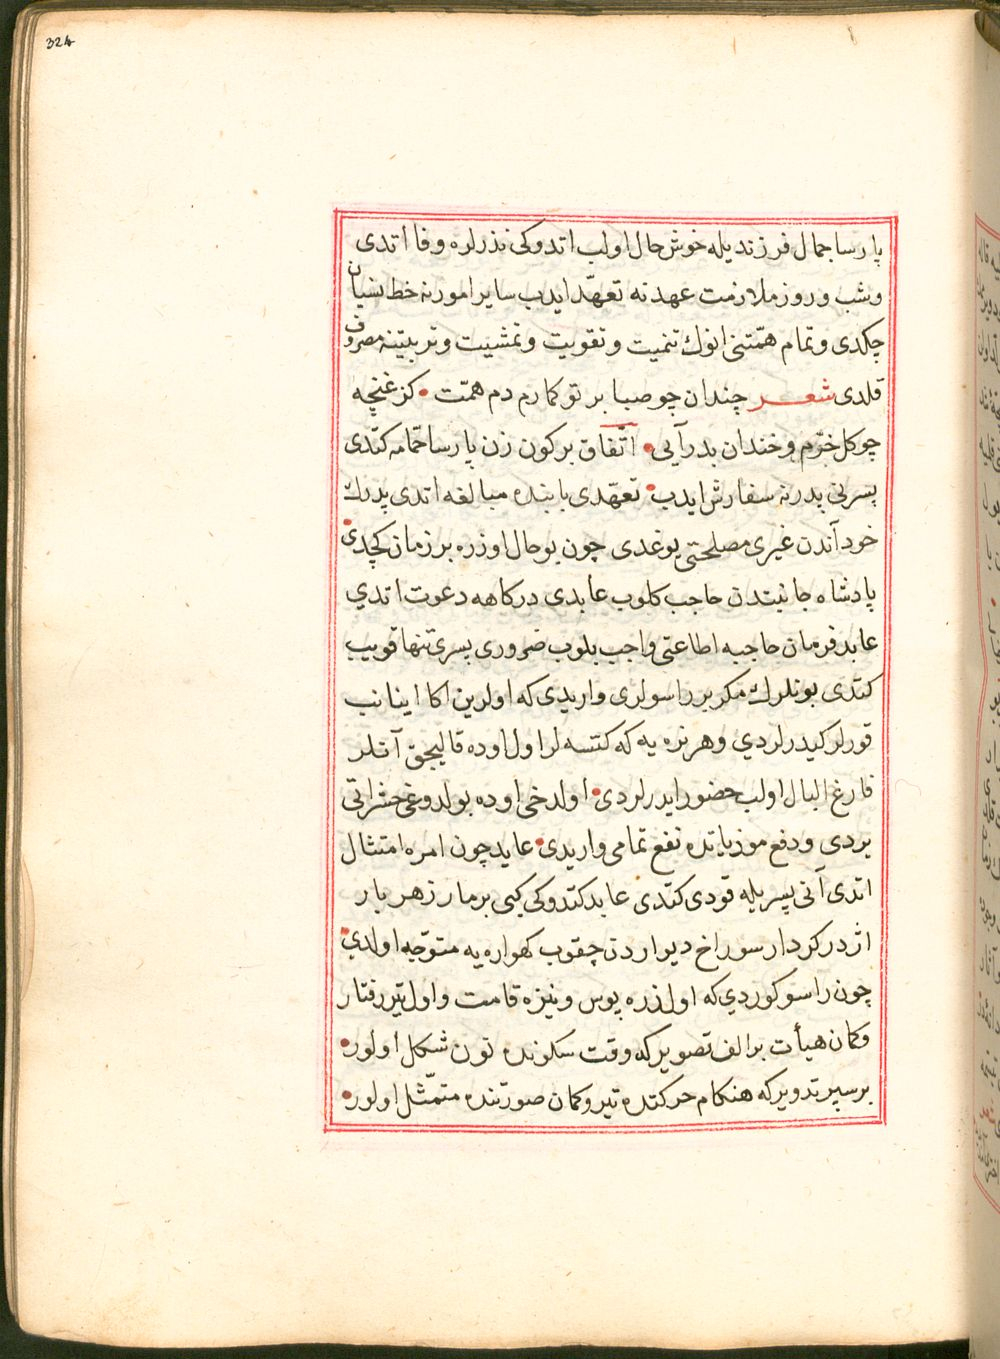 324
پارسا جمال فرزندیله خوش حال اولب اتدوکی نذرلره وفا اتدی
وشب وروز ملازمت عهدنه تعهّد ایدب سایر امورنه خط نسیان
چکدی وتمام همّتنی انوك تنمیت وتقویت وتمشیت وتربیتنه مصروف
قلدی شعر چندان چو صبا بر تو کمارم دم همّت • کز غنچه
چو کل خرّم وخندان بدر آیی • اتّفاق برکون زن پارسا حمّامه کتدی
پسرنی پدرنه سفارش ایدب • تعهّدی بابنده مبالغه اتدی پدرك
خود آندن غیری مصلحتی یوغدی چون بو حال اوزره بر زمان کچدی •
پادشاه جانبتدن حاجب کلوب عابدی درکاهه دعوت اتدي
عابد فرمان حاجبه اطاعتی واجب بلوب ضروری پسری تنها قویب
کتدی بونلرك مکر بر راسولری واریدی که اولرین اکا اینانب
قورلر کیدرلردي وهر نره یه که کتسه لر اول اوده قالیجق آنلر
فارغ البال اولب حضور ایدرلردی • اولدخی اوده بولدوغی حشراتی
یردی ودفع موذیاتده نفع تمامی واریدی • عابد چون امره امتثال
اتدی آنی پسریله قودی کتدی عابد کتدوکی کبی بر مار زهر بار
اژدر کردار سوراخ دیواردن چقوب کهواره یه متوجّه اولدي •
چون راسو کوردي که اول زره پوس ونیزه قامت واول تیر رفتار
وکمان هیأت بر الف تصویر که وقت سکونده نون شکل اولور •
بر سپر تدویر که هنکام حرکتده تیر وکمان صورتنده متمّثل اولور •